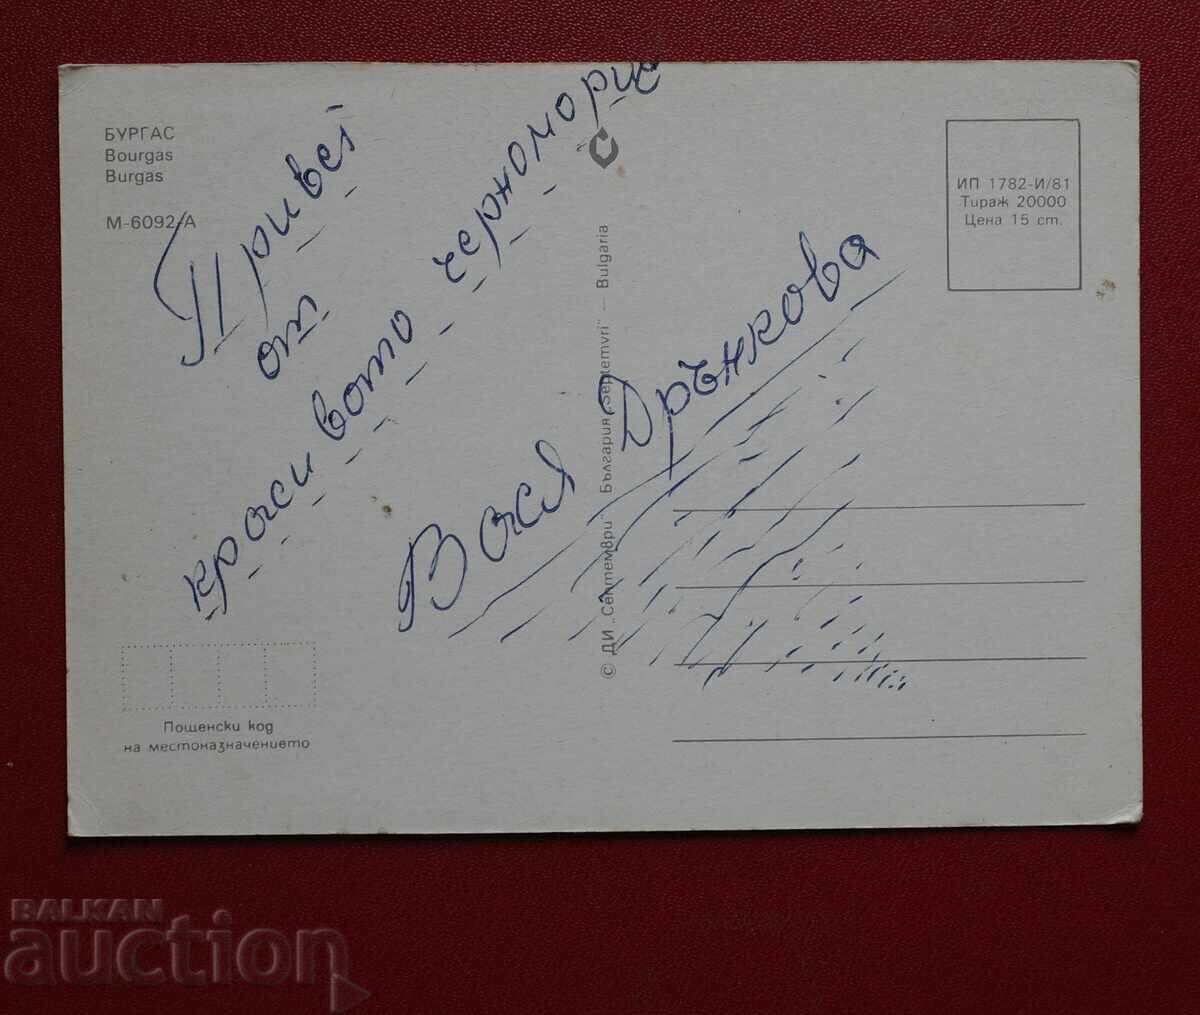 БУРГАС
Bourgas
Burgas
М-6092-А
Привет
от
красивото черномори
Вася Дрънкова
© ДИ „Септември" България „Septemvri" — Bulgaria
ИП 1782-И/81
Тираж 20000
Цена 15 ст.
Пощенски код
на местоназначението
BALKAN
auction